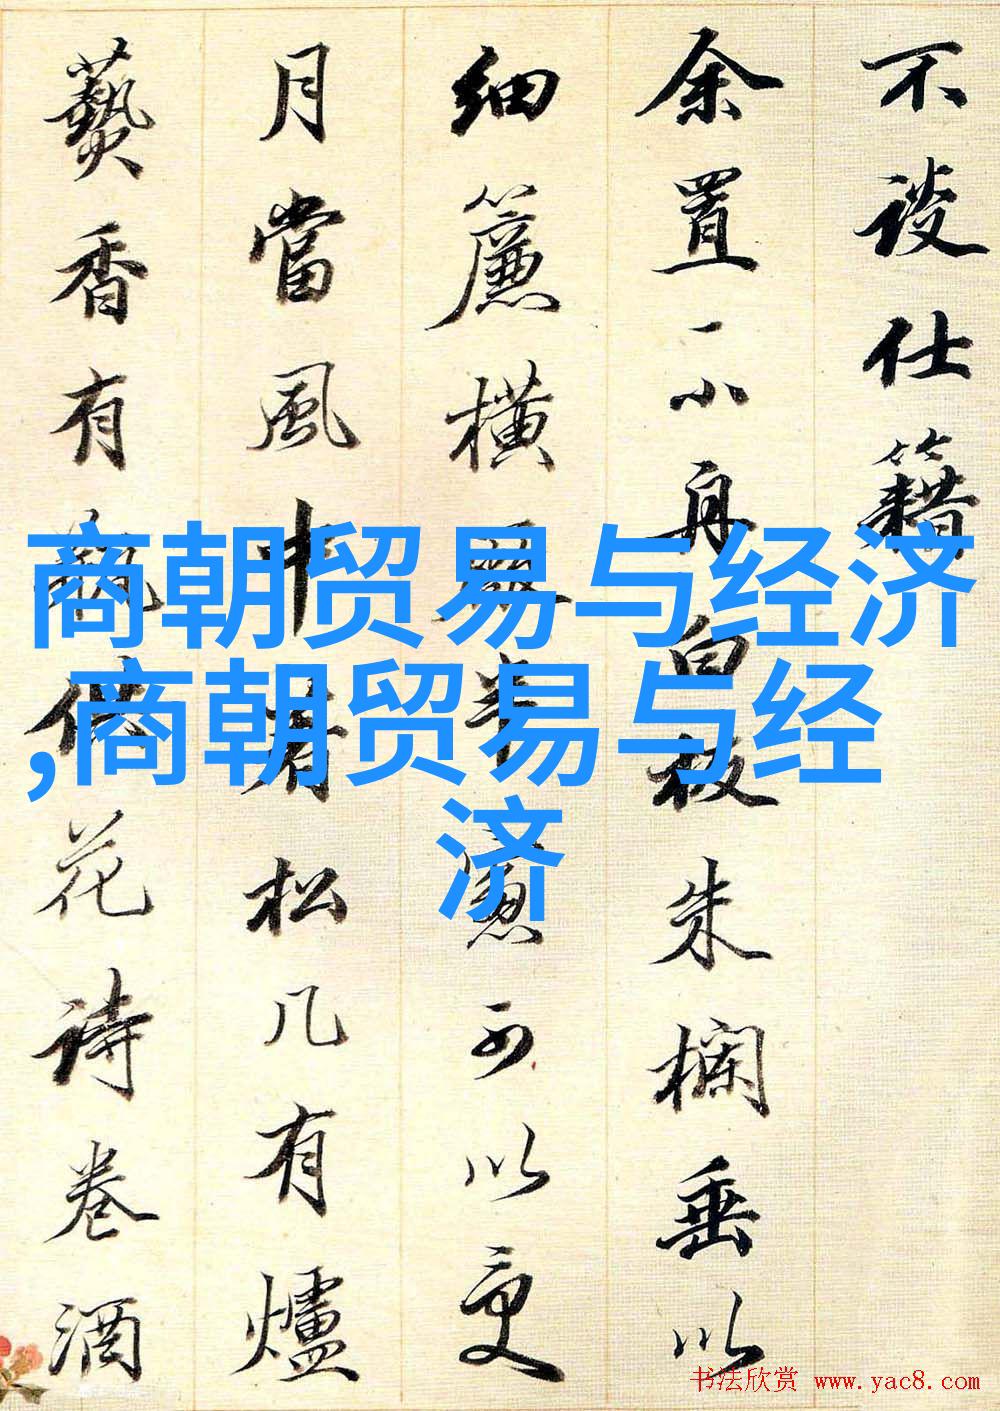 不談仕籍
余置一小舟白板朱欄垂以
細簾橫
可以更
月當風
松几有爐
爇香有
花詩卷酒
商朝贸易与经济
,商朝贸易与经
济
书法欣赏 www.yac8.com